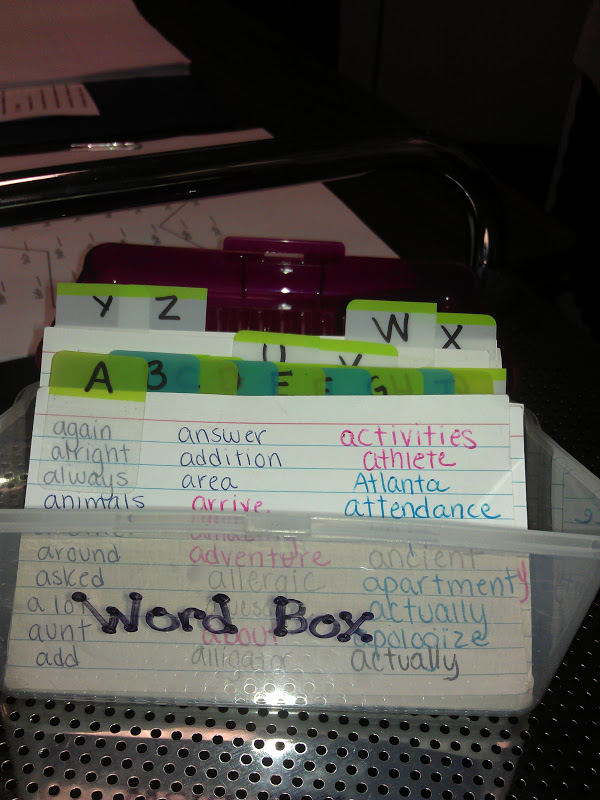 Y Z
W X
U V
A B C D E F G H
again answer activities
alright addition athlete
always area Atlanta
animals arrive attendance
around adventure ancient
asked allergic apartment
a lot actually
aunt about apologize
add alligator actually
Word Box